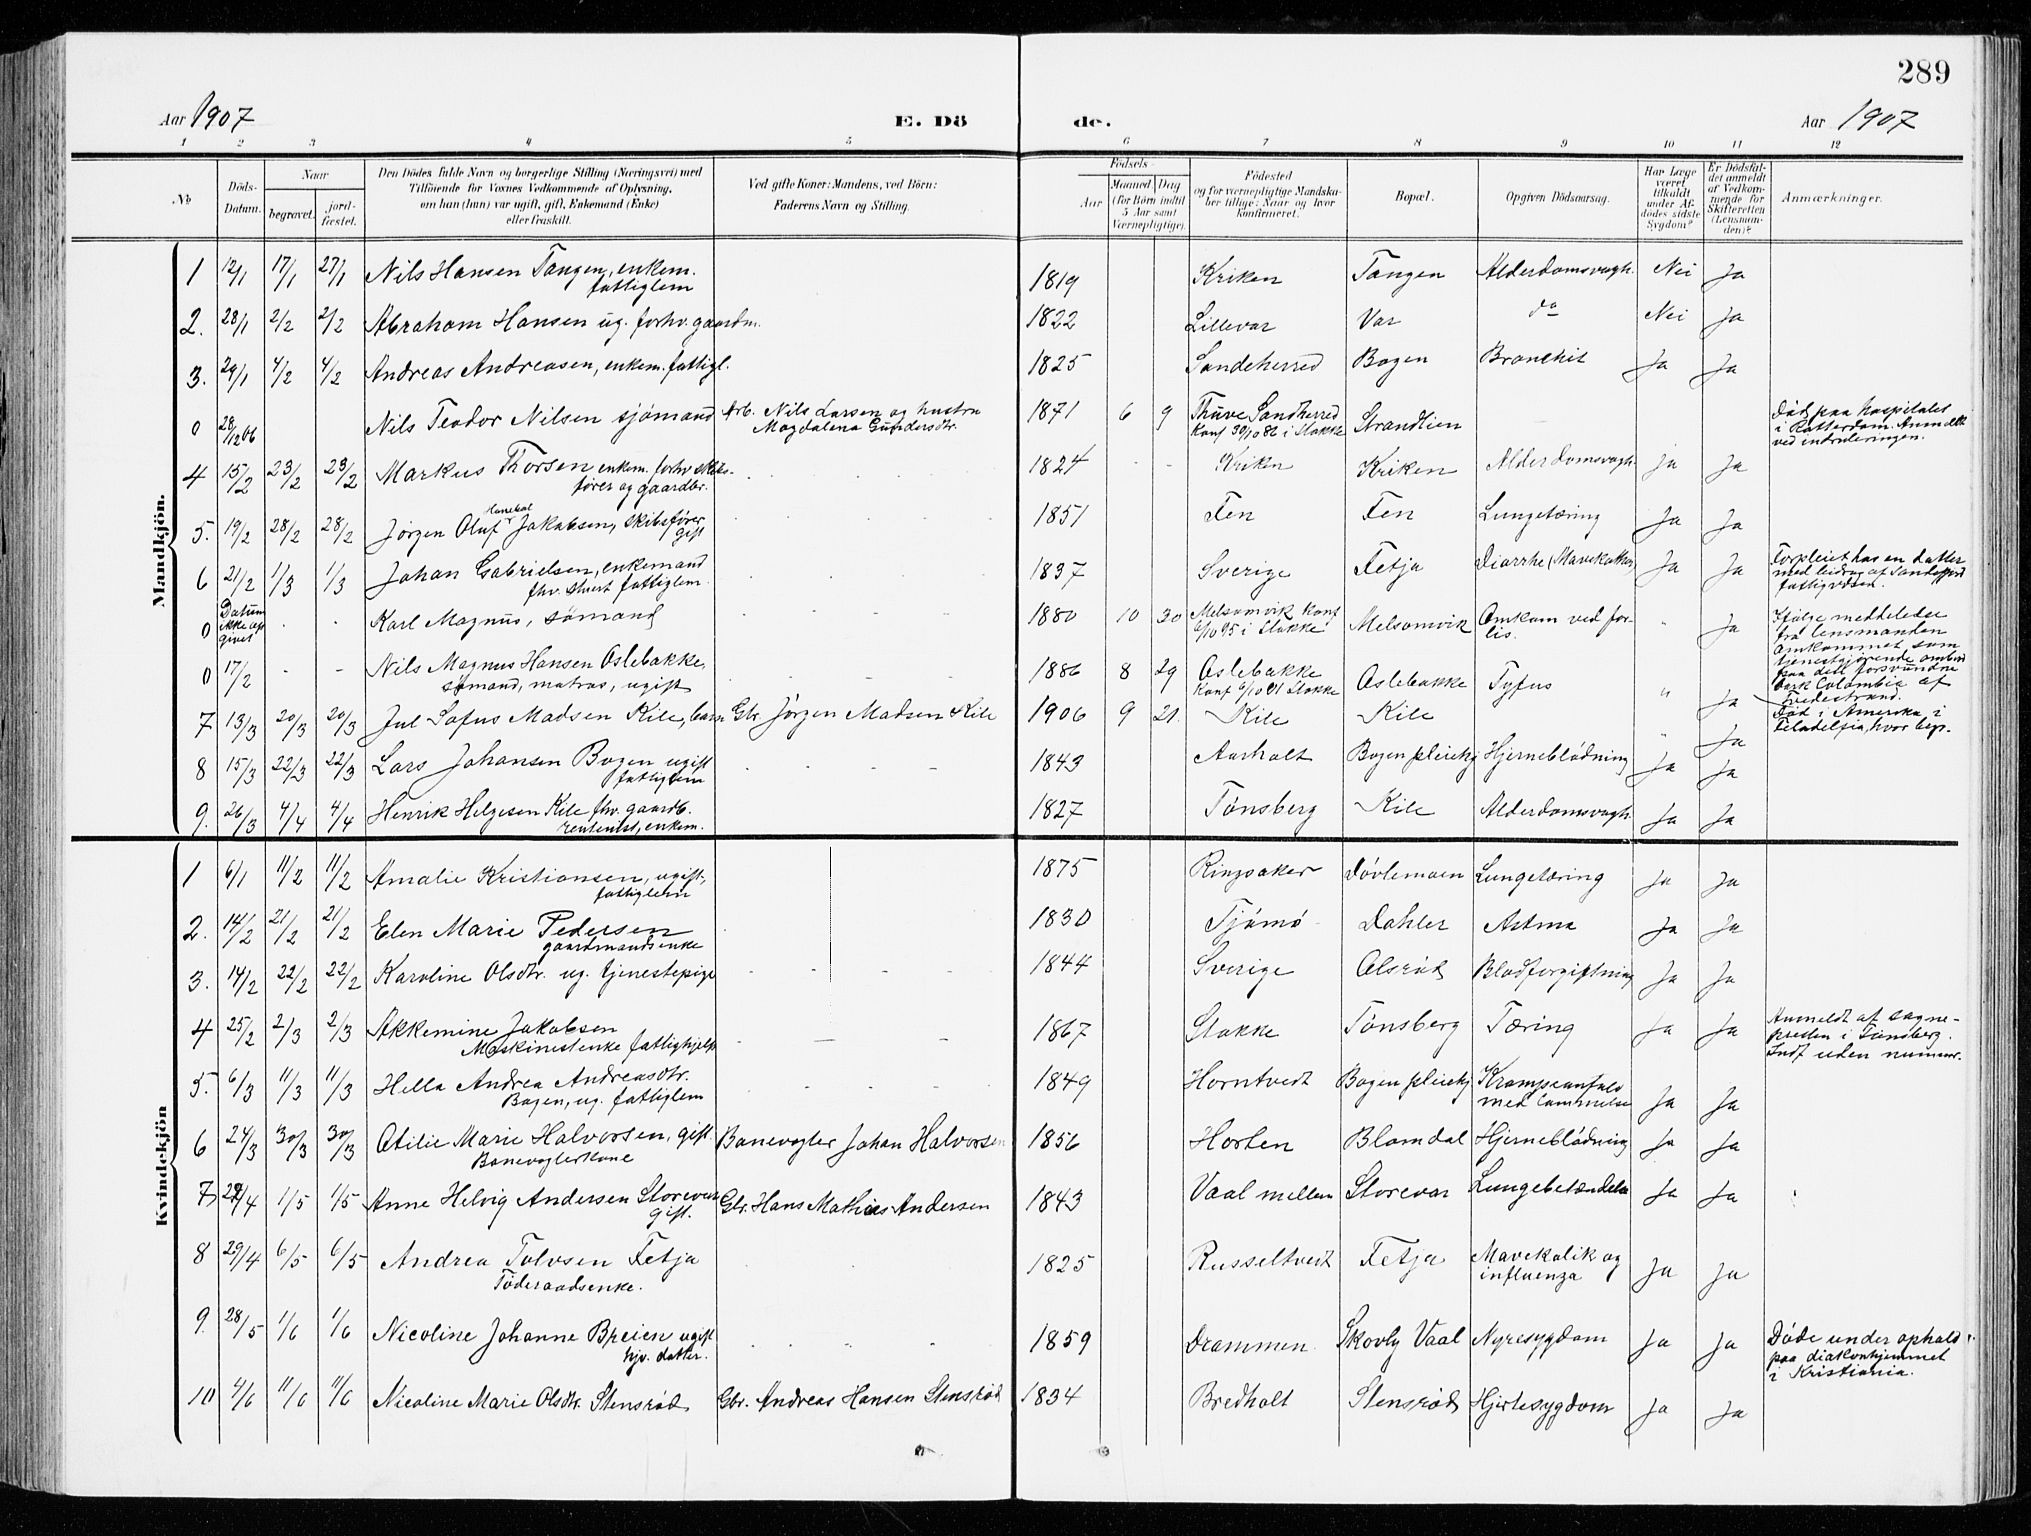 289
Aar 1907 E. Dö de. Aar 1907
1 2 3 4 5 6 7 8 9 10 11 12
No Döds-Datum. Naar begravet. jord-fæstet. Den Dödes fulde Navn og borgerlige Stilling (Næringsvei) med Tilföiende for Voxnes Vedkommende af Oplysning, om han (hun) var ugift, gift, Enkemand (Enke) eller fraskilt. Ved gifte Koner: Mandens, ved Börn: Faderens Navn og Stilling. Födsels- Aar Maaned Dag (for Börn indtil 5 Aar samt Værnepligtige). Födested og for værnepligtige Mandskaber tillige: Naar og hvor konfirmeret. Bopæl. Opgiven Dödsaarsag. Har Læge været tilkaldt under Afdödes sidste Sygdom? Er Dödsfaldet anmeldt af Vedkommende for Skifteretten (Lensmanden)? Anmærkninger.
Mandkjön.
1 12/1 17/1 27/1 Nils Hansen Tangen, enkem. fattiglem 1819 Kriken Tangen Alderdomsvagh. Nei Ja
2. 28/1 2/2 2/2 Abraham Hansen ug. forhv. gaardm. 1822 Lillevar Var do Nei Ja
3. 29/1 4/2 4/2 Andreas Andreasen, enkem. fattigl. 1825 Sandeherred Bogen Bronchit Ja Ja
0 28/12 06 Nils Teodor Nilsen sjömand Arb. Nils Larsen og hustru Magdalena Gundersdtr. 1871 6 9 Thuve Sandherred Konf 30/10 86 i Stokke Strandlien Död paa hospitalet i Rotterdam. Anmeldt ved indruleringen.
4 15/2 23/2 23/2 Markus Thorsen enkem. forhv skibsfører og gaardbr. 1824 Kriken Kriken Alderdomsvagh. Ja Ja
5. 19/2 28/2 28/2 Jørgen Oluf Jakobsen, skibsfører gift 1851 Fen Fen Lungetæring Ja Ja
6 21/2 1/3 1/3 Johan Gabrielsen, enkemand fhv. fattiglem 1837 Sverige Fetja Diarrhe (Mavekatarr) Ja Ja Forpleiet hos en datter med bidrag af Sandefjord fattigvæsen.
0 Datum ikke opgivet Karl Magnus, sømand 1880 10 30 Melsomvik Konf 6/10 95 i Stokke Melsomvik Omkom ved forlis. " Ja Ifølge meddelelse fra lensmanden omkommet som tjenestgjørende ombord paa den forsvundne bark Colombia af Tvedestrand.
0 17/2 Nils Magnus Hansen Oslebakke, sømand, matros, ugift 1886 8 29 Oslebakke Konf 6/10 01 Stokke Oslebakke Tyfus " Ja Død i Amerika i Filadelfia, hvor begr.
7 13/3 20/3 20/3 Jul Sofus Madsen Kile, barn Gbr. Jörgen Madsen Kile 1906 9 21. Kile Kile " Ja
8 15/3 22/3 22/3 Lars Johansen Bogen ugift fattiglem 1843 Aarholt Bogen pleiehj Hjerneblödning Ja Ja
9. 26/3 4/4 4/4 Henrik Helgesen Kile fhv. gaardb. rentenist, enkem. 1827 Tönsberg Kile Alderdomsvagh. Ja Ja
Kvindekjön
1 6/1 11/2 11/2 Amalie Kristiansen, ugift, fattiglem 1875 Ringsaker Dövlemoen Lungetæring Ja Ja
2. 14/2 21/2 21/2 Elen Marie Pedersen gaardmandsenke 1830 Tjömö Dahler Astma Ja Ja
3. 14/2 22/2 22/2 Karoline Olsdtr. ug. tjenestepige 1844 Sverige Olsröd Blodforgiftning Ja Ja
4 25/2 2/3 2/3 Akkemine Jakobsen Maskinestenke fattighjelp 1867 Stokke Tönsberg Tæring Ja Ja Anmeldt af sognepresten i Tönsberg. Indf uden nummer.
5. 6/3 11/3 11/3 Hella Andrea Andreasdtr. Bogen, ug. fattiglem 1849 Horntvedt Bogen pleiehj Krampeanfald med lammelse Ja Ja
6 24/3 30/3 30/3 Otilie Marie Halvorsen, gift. Banevogterkone Banevogter Johan Halvorsen 1856 Horten Blomdal Hjerneblödning Ja Ja
7 29/4 1/5 1/5 Anne Helvig Andersen Storevar gift. Gbr. Hans Mathias Andersen 1843 Vaal mellem Storevar Lungebetændelse Ja Ja
8 29/4 6/5 6/5 Andrea Tolvsen Fetja Föderaadsenke. 1825 Russeltvedt Fetja Mavekolik og influenza Ja Ja
9. 28/5 1/6 1/6 Nicoline Johanne Breien ugift hjv. datter. 1859 Drammen Skovly Vaal Nyresygdom Ja Ja Döde under ophold paa diakonhjemmet i Kristiania.
10 4/6 11/6 11/6 Nicoline Marie Olsdtr. Stensröd Gbr. Andreas Hansen Stensröd 1834 Bredholt Stensröd Hjertesygdom Ja Ja